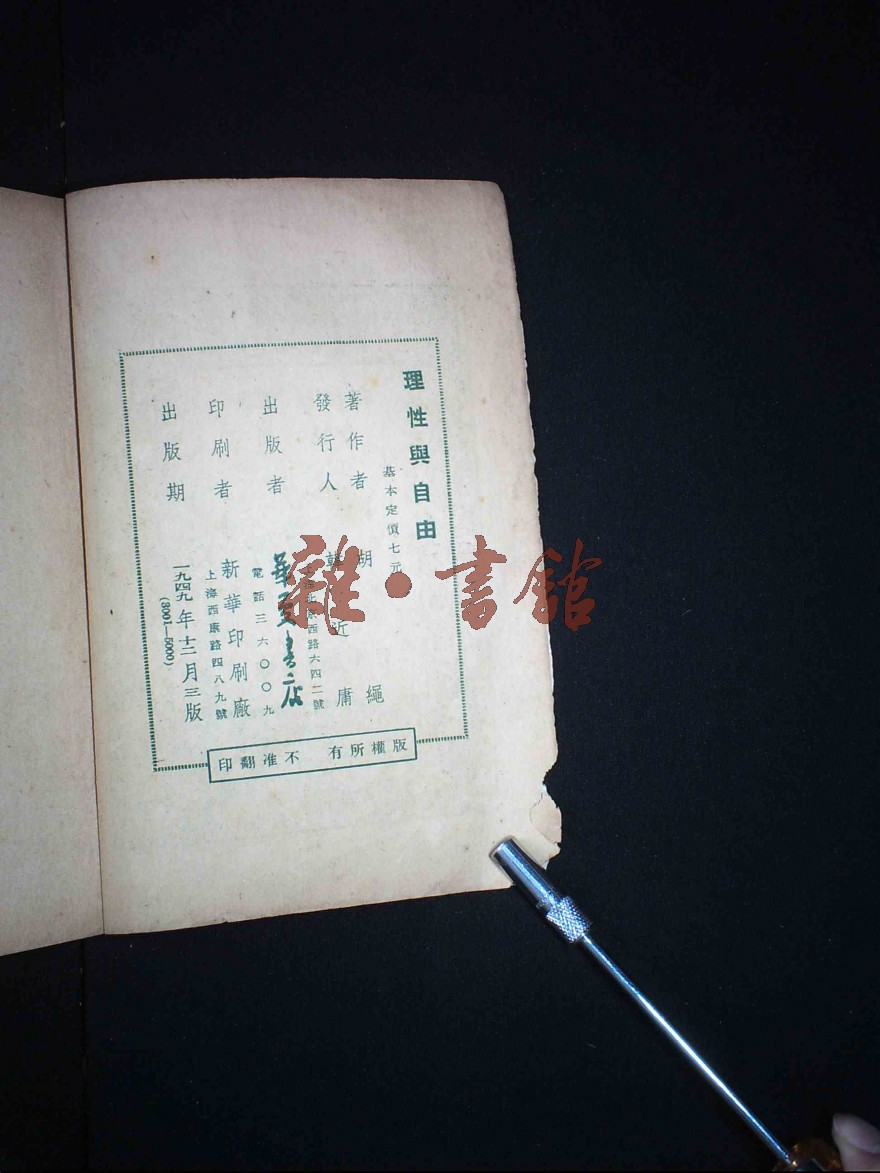 理性與自由
基本定價七元
著作者 胡 繩
發行人 韓近庸
出版者 華夏書店
上海北京西路六四二號
電話三六〇〇九
印刷者 新華印刷廠
上海西康路四八九號
出版期 一九四九年十二月三版
(3001—5000)
版權所有 不准翻印
雜·書館